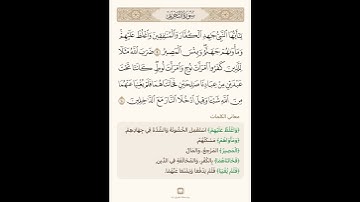 سُورَةُ التَّحْرِيمِ
يَٰٓأَيُّهَا ٱلنَّبِيُّ جَٰهِدِ ٱلۡكُفَّارَ وَٱلۡمُنَٰفِقِينَ وَٱغۡلُظۡ عَلَيۡهِمۡۚ
وَمَأۡوَىٰهُمۡ جَهَنَّمُۖ وَبِئۡسَ ٱلۡمَصِيرُ ٩ ضَرَبَ ٱللَّهُ مَثَلٗا
لِّلَّذِينَ كَفَرُواْ ٱمۡرَأَتَ نُوحٖ وَٱمۡرَأَتَ لُوطٖۖ كَانَتَا تَحۡتَ
عَبۡدَيۡنِ مِنۡ عِبَادِنَا صَٰلِحَيۡنِ فَخَانَتَاهُمَا فَلَمۡ يُغۡنِيَا عَنۡهُمَا
مِنَ ٱللَّهِ شَيۡـٔٗا وَقِيلَ ٱدۡخُلَا ٱلنَّارَ مَعَ ٱلدَّٰخِلِينَ ١٠
معاني الكلمات
﴿وَٱغۡلُظۡ عَلَيۡهِمۡ﴾ اسْتَعْمِلِ الخُشُونَةَ وَالشِّدَّةَ فِي جِهَادِهِمْ.
﴿وَمَأۡوَىٰهُمۡ﴾ مَسْكَنُهُمْ.
﴿ٱلۡمَصِيرُ﴾ المَرْجِعُ، وَالمَآلُ.
﴿فَخَانَتَاهُمَا﴾ بِالكُفْرِ، وَالمُخَالَفَةِ فِي الدِّينِ.
﴿فَلَمۡ يُغۡنِيَا﴾ فَلَمْ يَدْفَعَا وَيَمْنَعَا عَنْهُمَا.